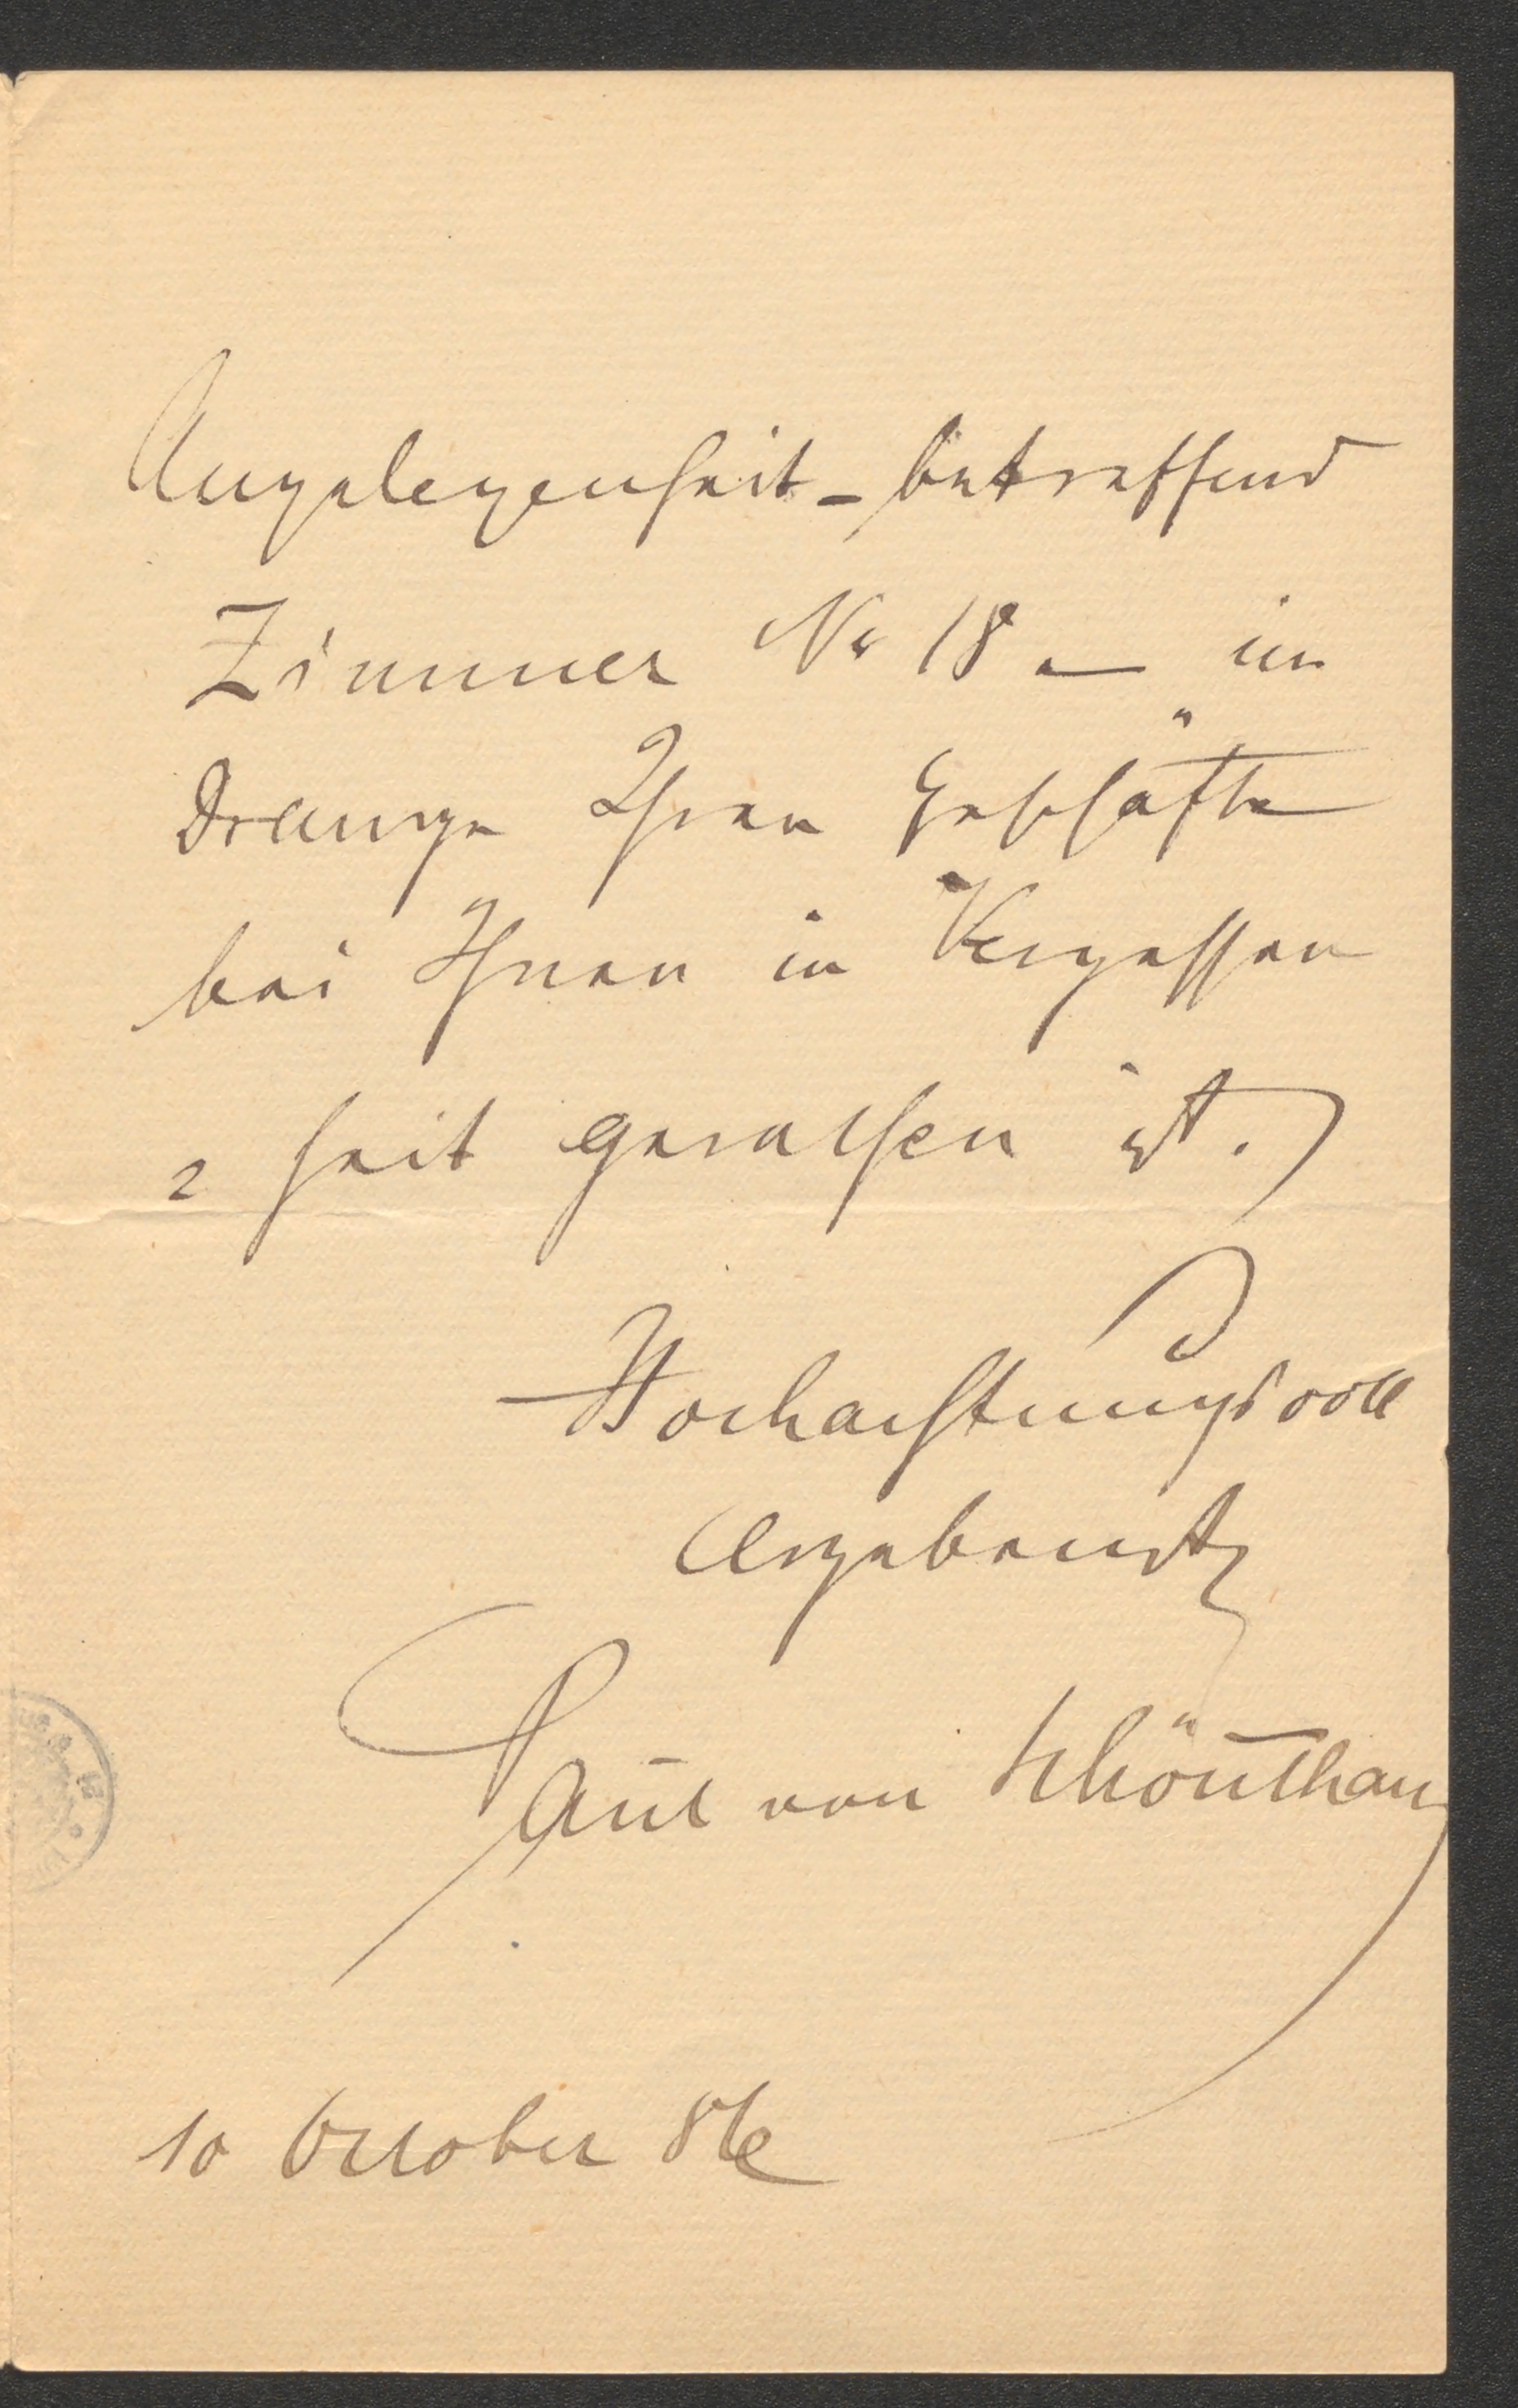 Angelegenheit – betreffend
Zimmer Nr 18 – im
Drange Ihrer Geschäfte
bei Ihnen in Vergessen
= heit gerathen ist.
Hochachtungsvoll
ergebenst
Paul von Schönthan
10 October 86